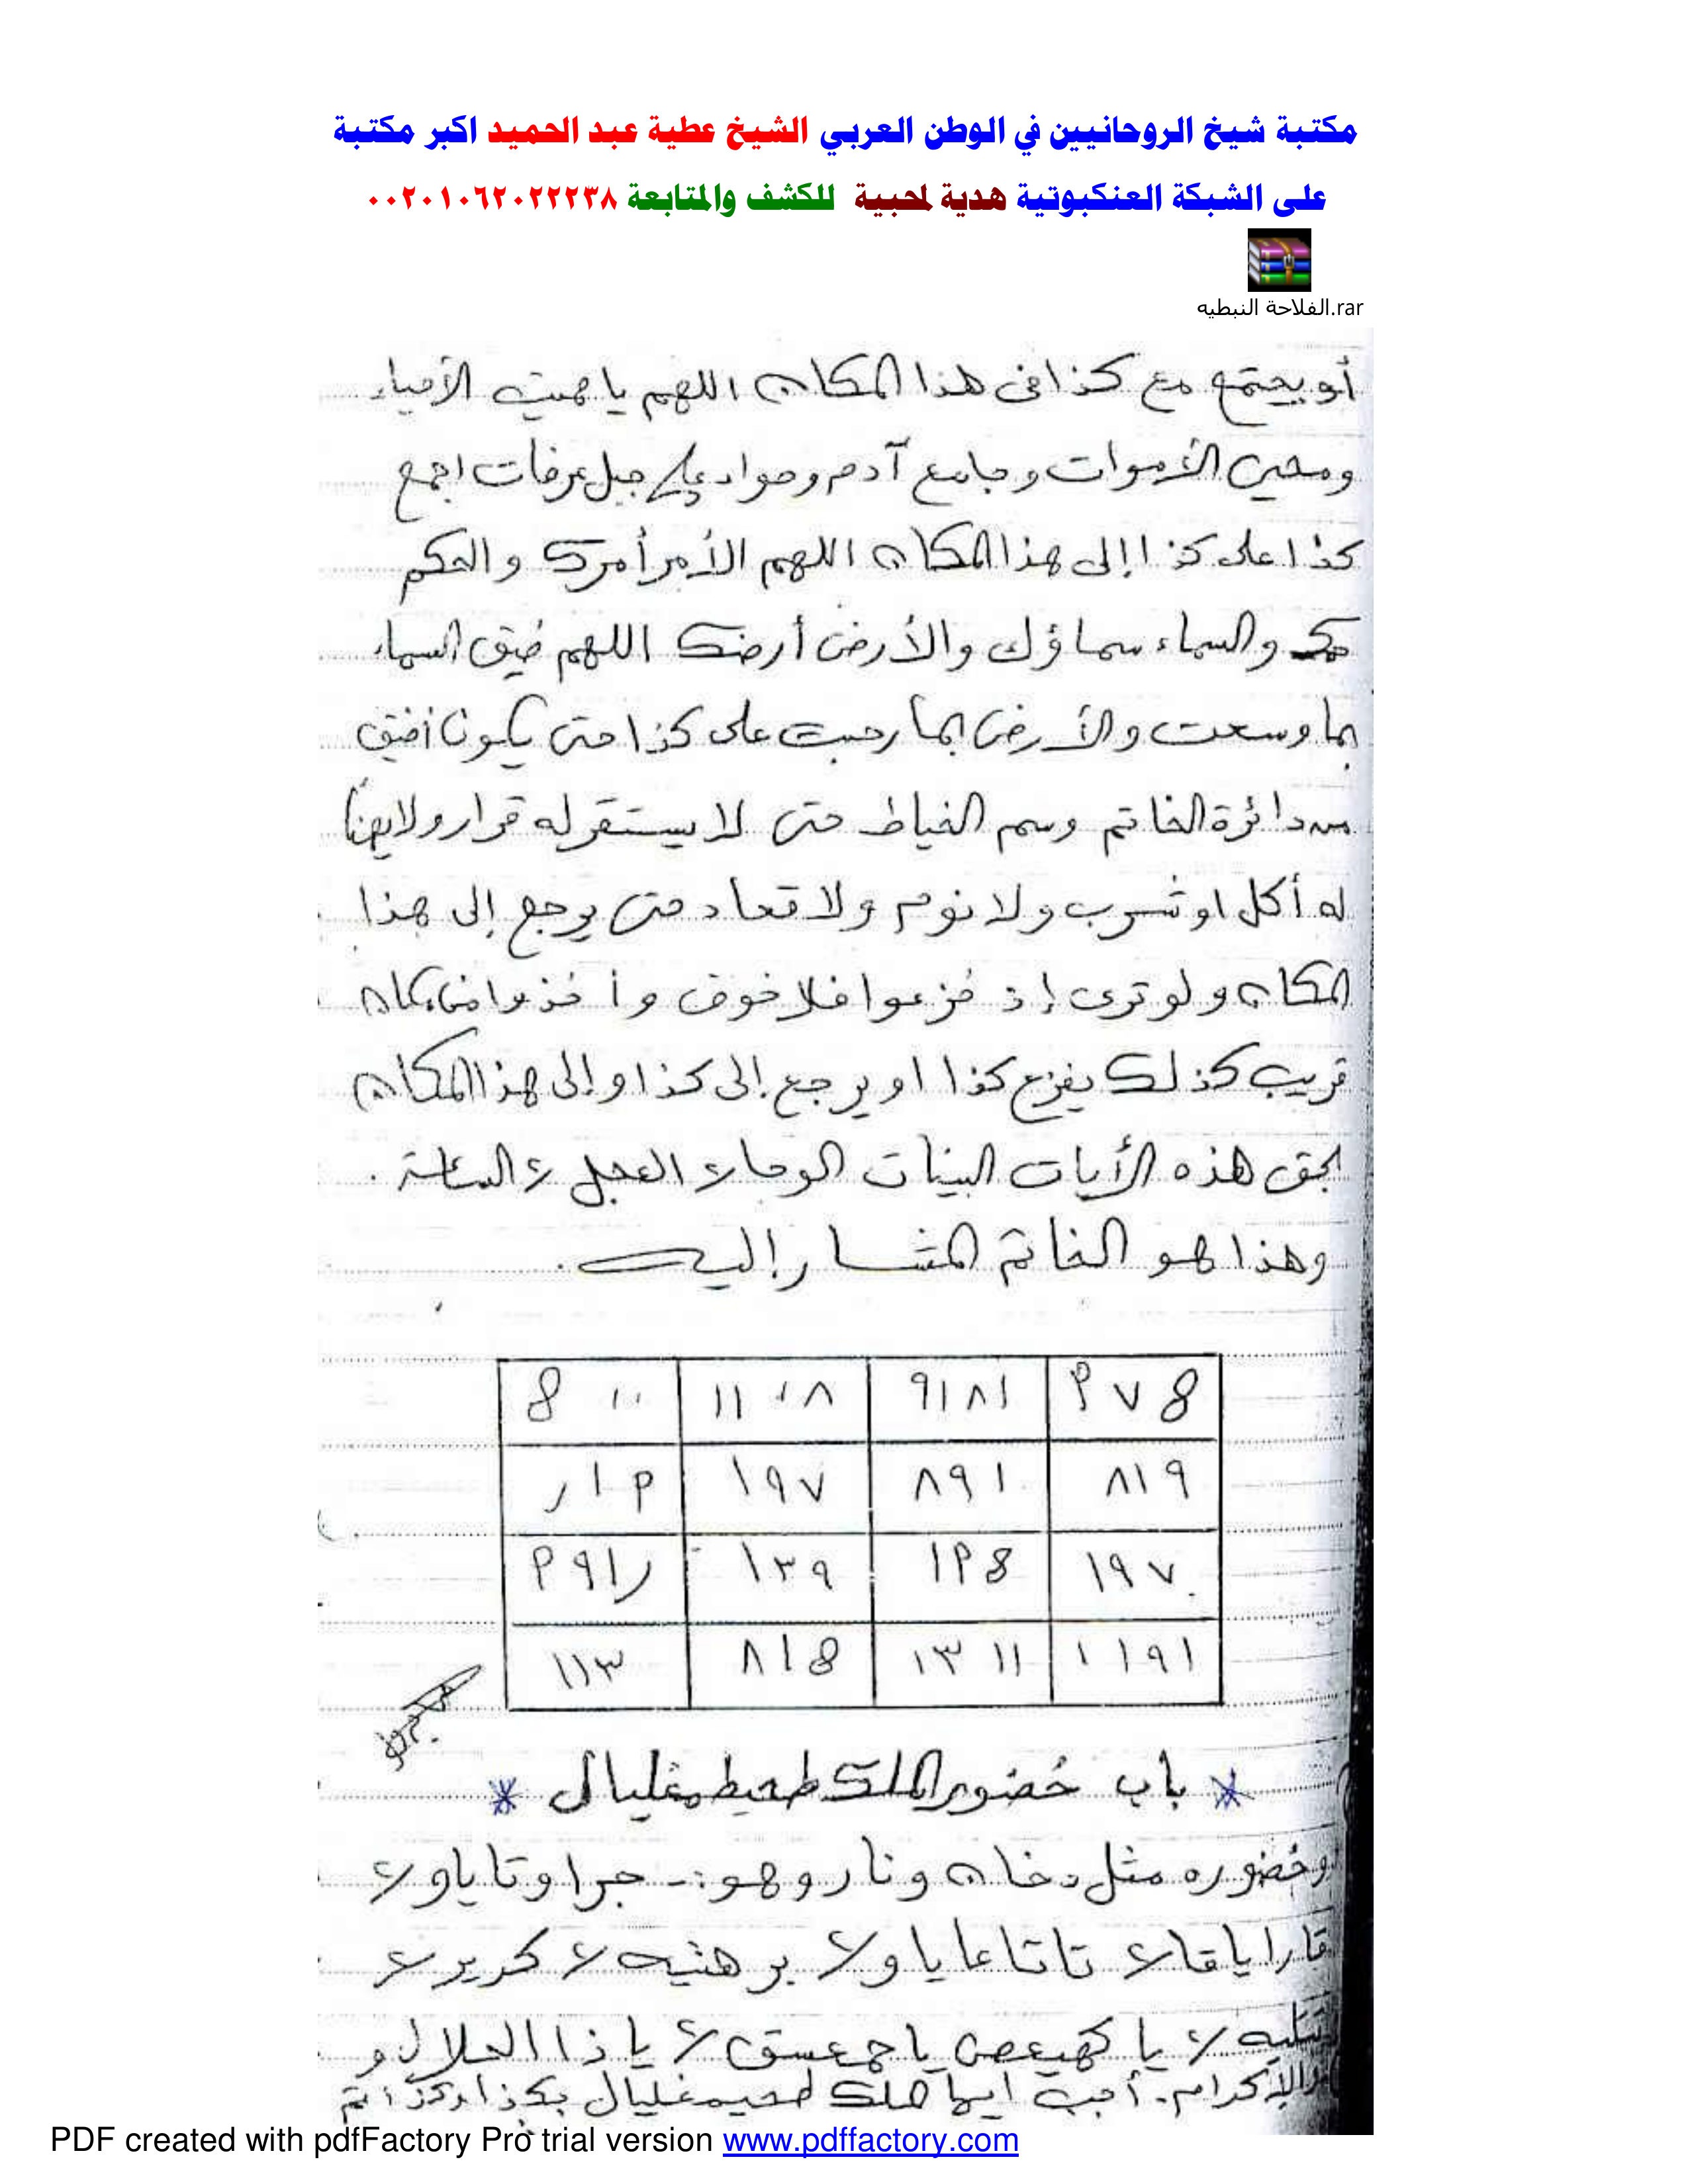 مكتبة شيخ الروحانيين في الوطن العربي الشيخ عطية عبد الحميد اكبر مكتبة
على الشبكة العنكبوتية هدية لمحبية للكشف والمتابعة ٠٠٢٠١٠٦٢٠٢٢٢٣٨
الفلاحة النبطيه.rar
أو يجتمع مع كذا فى هذا المكان اللهم يا مميت الأحياء
ومحيى الأموات وجامع آدم وحواء على جبل عرفات اجمع
كذا على كذا إلى هذا المكان اللهم الأمر أمرك والحكم
حكمك والسماء سماؤك والأرض أرضك اللهم ضيق السماء
بما وسعت والأرض بما رحبت على كذا حتى يكون أضيق
من دائرة الخاتم وسم الخياط حتى لا يستقر له قرار ولا يهنأ
له أكل او شرب ولا نوم ولا قعاد حتى يرجع إلى هذا
المكان ولو ترى إذ فزعوا فلا فوت وأخذوا من مكان
قريب كذلك يفزع كذا او يرجع إلى كذا وإلى هذا المكان
بحق هذه الأيات البينات الوحا ٢ العجل ٢ الساعة ٢ .
وهذا هو الخاتم المشار إليه .
8 ٧ م ٩١٨١ ٨٠١١ 8 ١١
٨١٩ ٨٩١ ١٩٧ م ا ر
١٩٧ ١م8 ١٣٩ م ٩ ا ر
١١٩١ ١٣١١ ٨١8 ١١٣
* باب حضور الملك طحيطمغليال *
وحضوره مثل دخان ونار وهو :- جبرا وتاياو ٢
قارا ياقا ٢ تاتا عاياو ٢ برهتيه ٢ كرير ٢
تتليه ٢ يا كهيعص يا حمعسق ٢ يا ذا الجلال و
الإكرام . أجب ايها الملك بكذا وكذا تم
PDF created with pdfFactory Pro trial version www.pdffactory.com